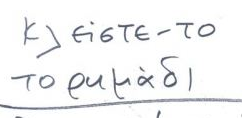 Κλείστε-το
το ρημάδι